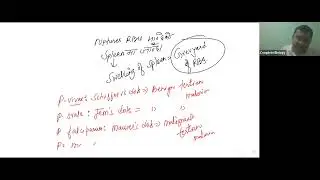 ruptures RBCs
Spleen
Swelling of Spleen = Graveyard of RBCs
P. vivax: Schuffner's dots ⇒ Benign tertian malaria
P. ovale : Jem's dots = " "
P. falciparum: Maurer's dots ⇒ Malignant tertian malaria
P. m
Complete Biology